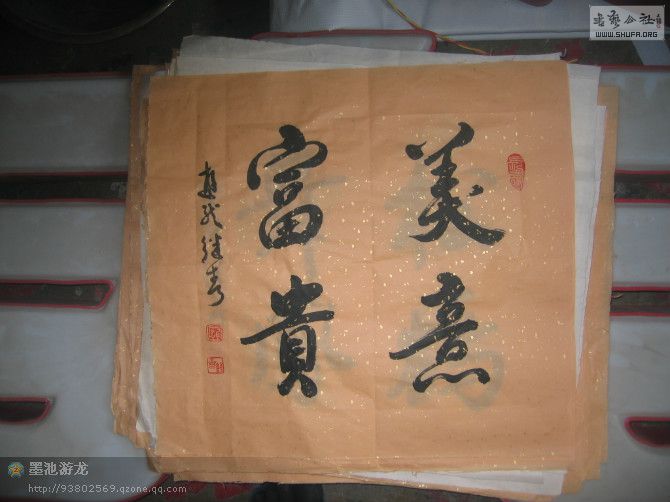 美意
富貴
書藝公社
WWW.SHUFA.ORG
墨池游龙
http://93802569.qzone.qq.com